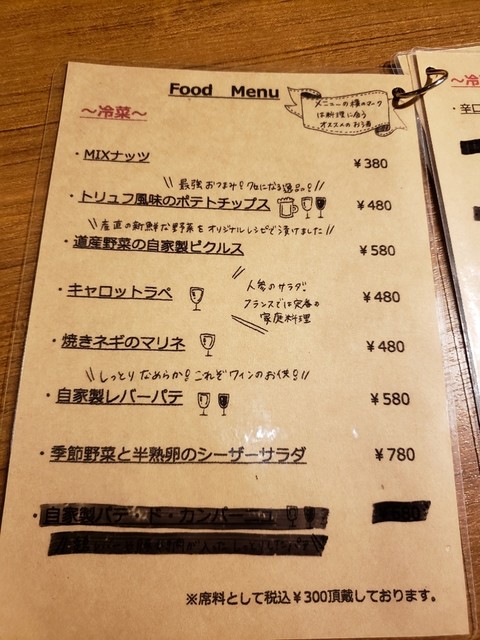 Food Menu
メニューの横のマーク
は料理に合う
オススメのお酒
～冷菜～
・MIXナッツ ￥380
\\ 最強おつまみ！クセになる逸品の！！ //
・トリュフ風味のポテトチップス ￥480
\\ 産直の新鮮な野菜をオリジナルレシピで漬けました //
・道産野菜の自家製ピクルス ￥580
・キャロットラペ ￥480
人参のサラダ！
フランスでは定番の
家庭料理
・焼きネギのマリネ ￥480
\\ しっとりなめらか！これぞワインのお供！！ //
・自家製レバーパテ ￥580
・季節野菜と半熟卵のシーザーサラダ ￥780
・自家製パテ・ド・カンパーニュ ￥680
※席料として税込￥300頂戴しております。
～冷
・辛口